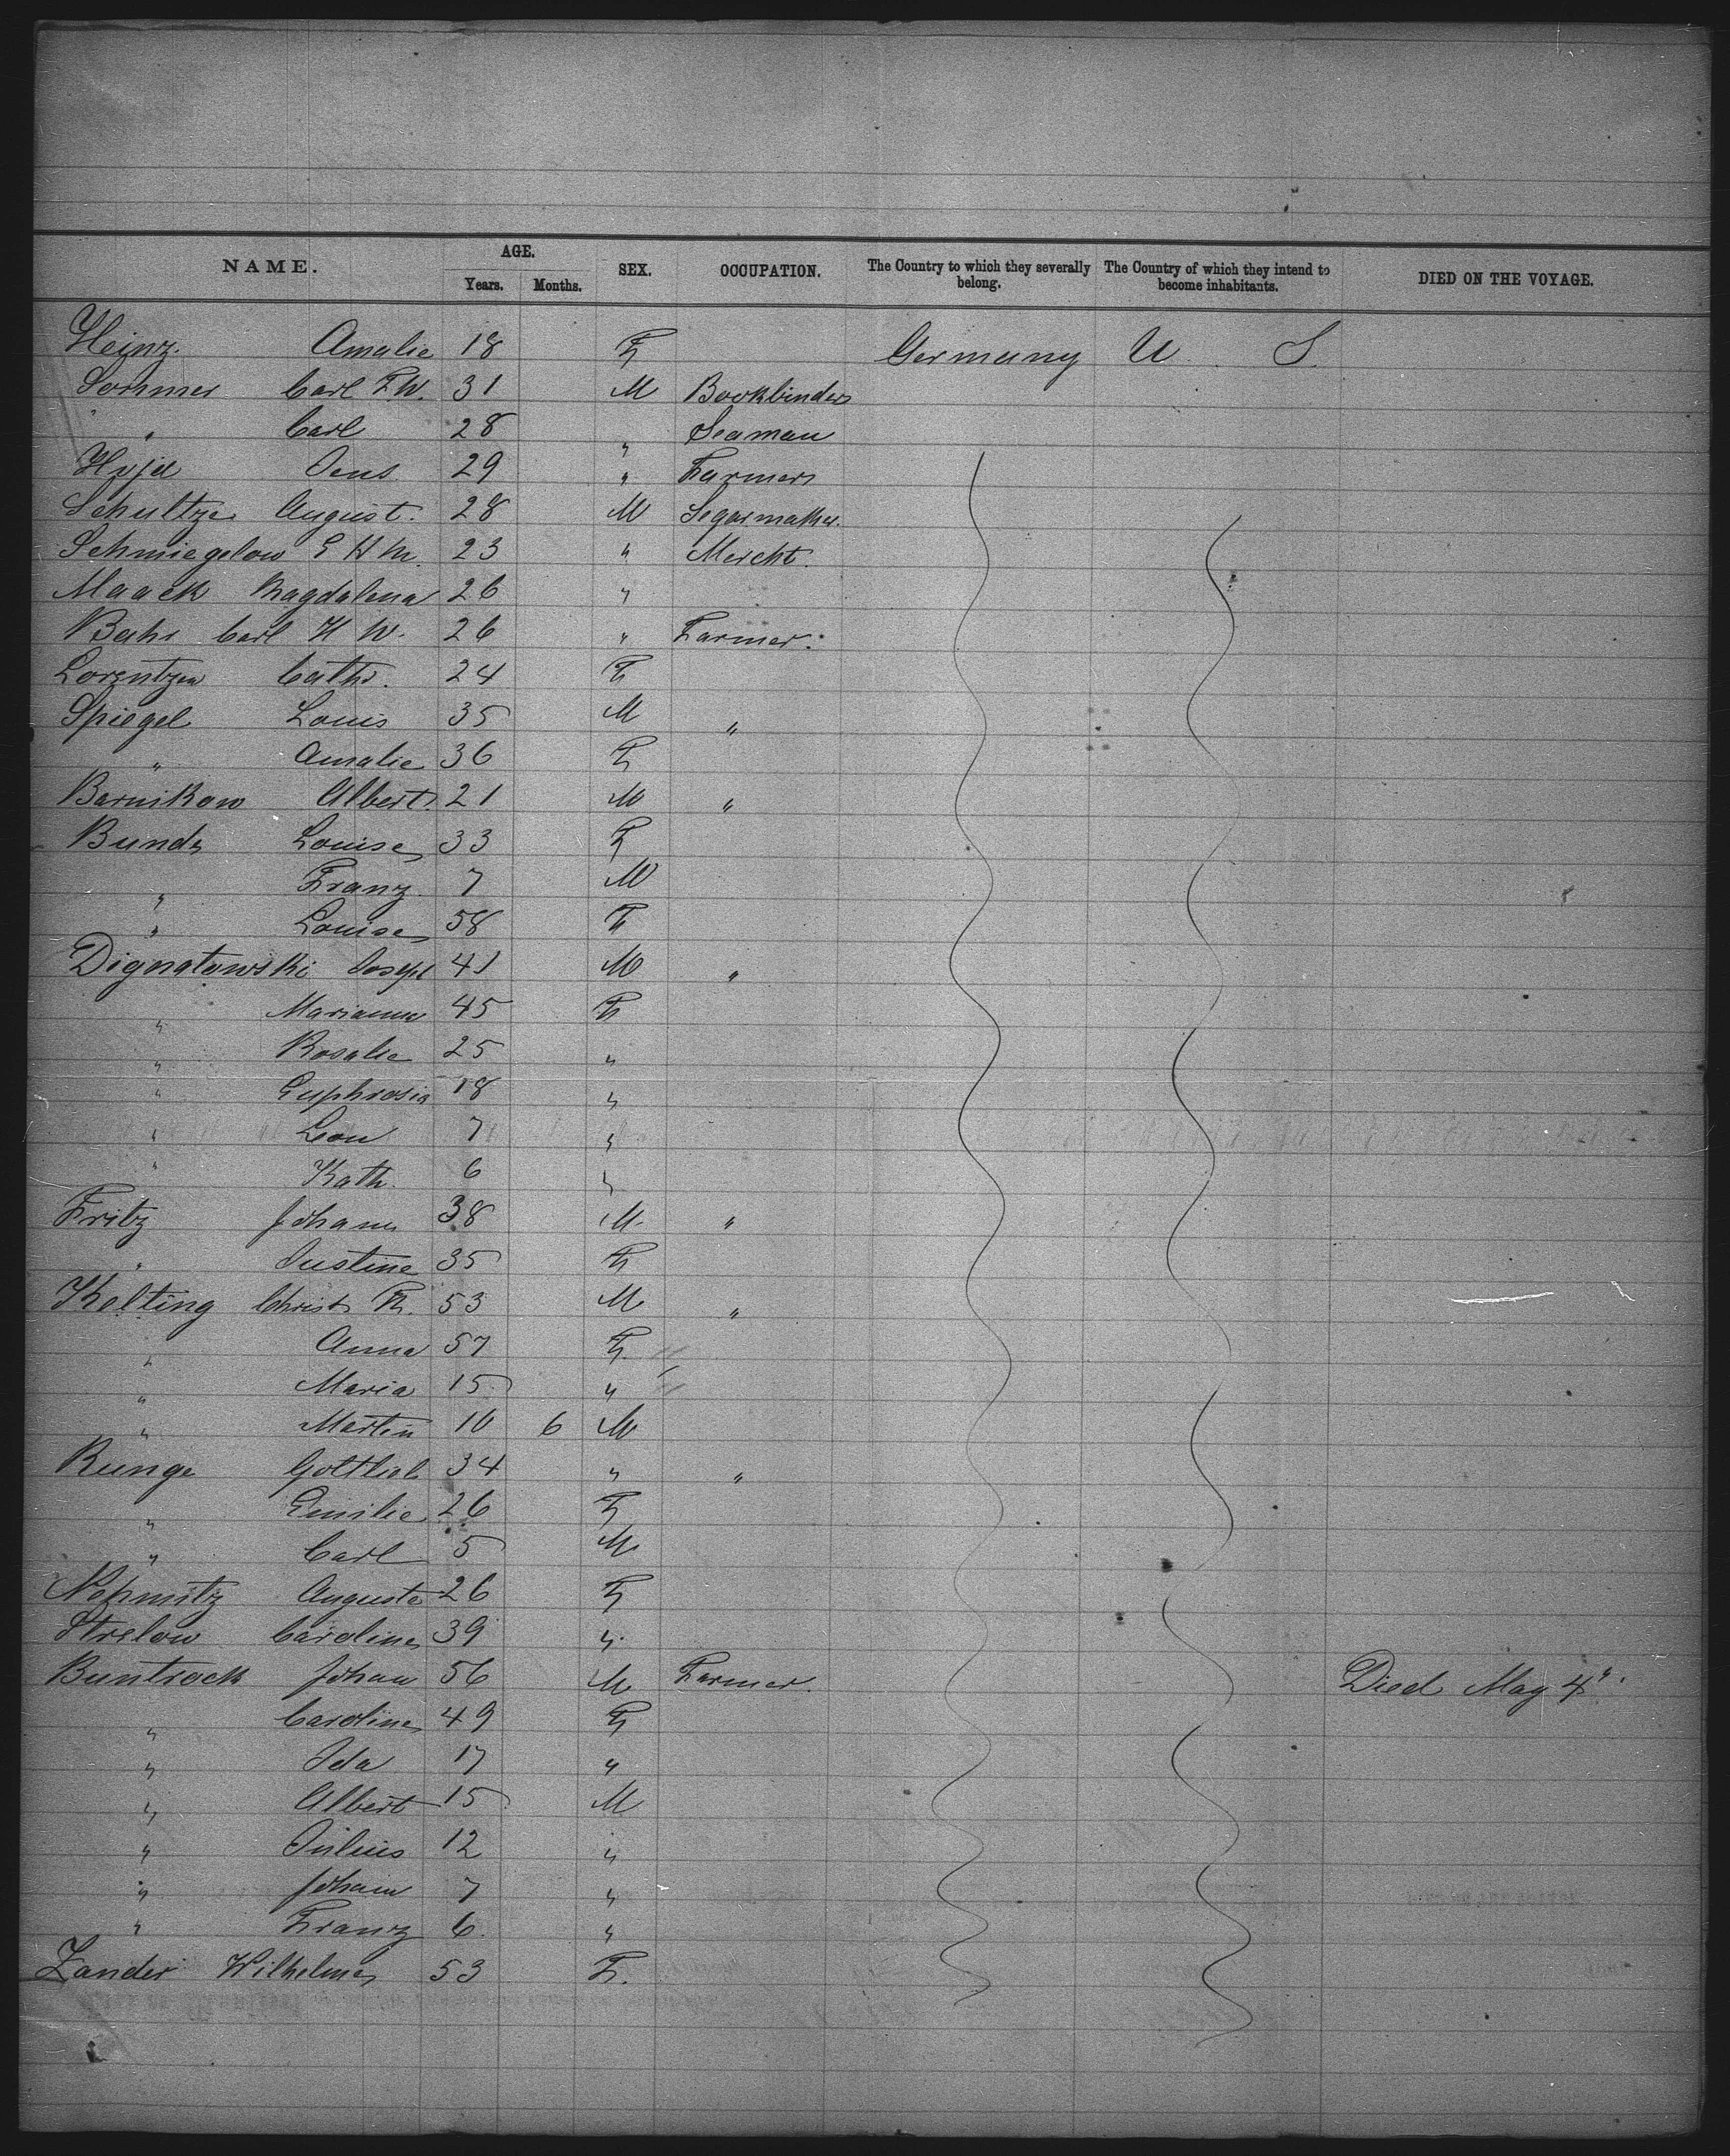 NAME. AGE. Years. Months. SEX. OCCUPATION. The Country to which they severally belong. The Country of which they intend to become inhabitants. DIED ON THE VOYAGE.
Heinz. Amalie 18 F Germany U S.
Sommer Carl F.W. 31 M Bookbinder
" Carl 28 " Seaman
Jens 29 " Farmer
Schultze August. 28 M Segarmaker.
Schmiegelow E H M. 23 " Mercht.
Maack Magdalena 26 "
Bahr Carl H W. 26 " Farmer.
Lorentzen Cathr. 24 F
Spiegel Louis 35 M "
" Amalie 36 F
Barnikow Albert 21 M "
Bunde Louise 33 F
" Franz 7 M
" Louise 58 F
Dignatowski Joseph 41 M "
" Marianna 45 F
" Rosalie 25 "
" Euphrosia 18 "
" Leon 7 "
" Kath. 6 "
Fritz Johann 38 M. "
" Justine 35 F
Kelting Christ. F. 53 M "
" Anna 57 F.
" Maria 15 "
" Martin 10 6 M
Runge Gottlieb 34 " "
" Emilie 26 F
" Carl 5 M
Nehmitz Auguste 26 F
Strelow Caroline 39 "
Buntrock Johan 56 M Farmer. Died May 4".
" Caroline 49 F
" Ida 17 "
" Albert 15 M
" Julius 12 "
" Johann 7 "
" Franz 6. "
Zander Wilhelmine 53 F.